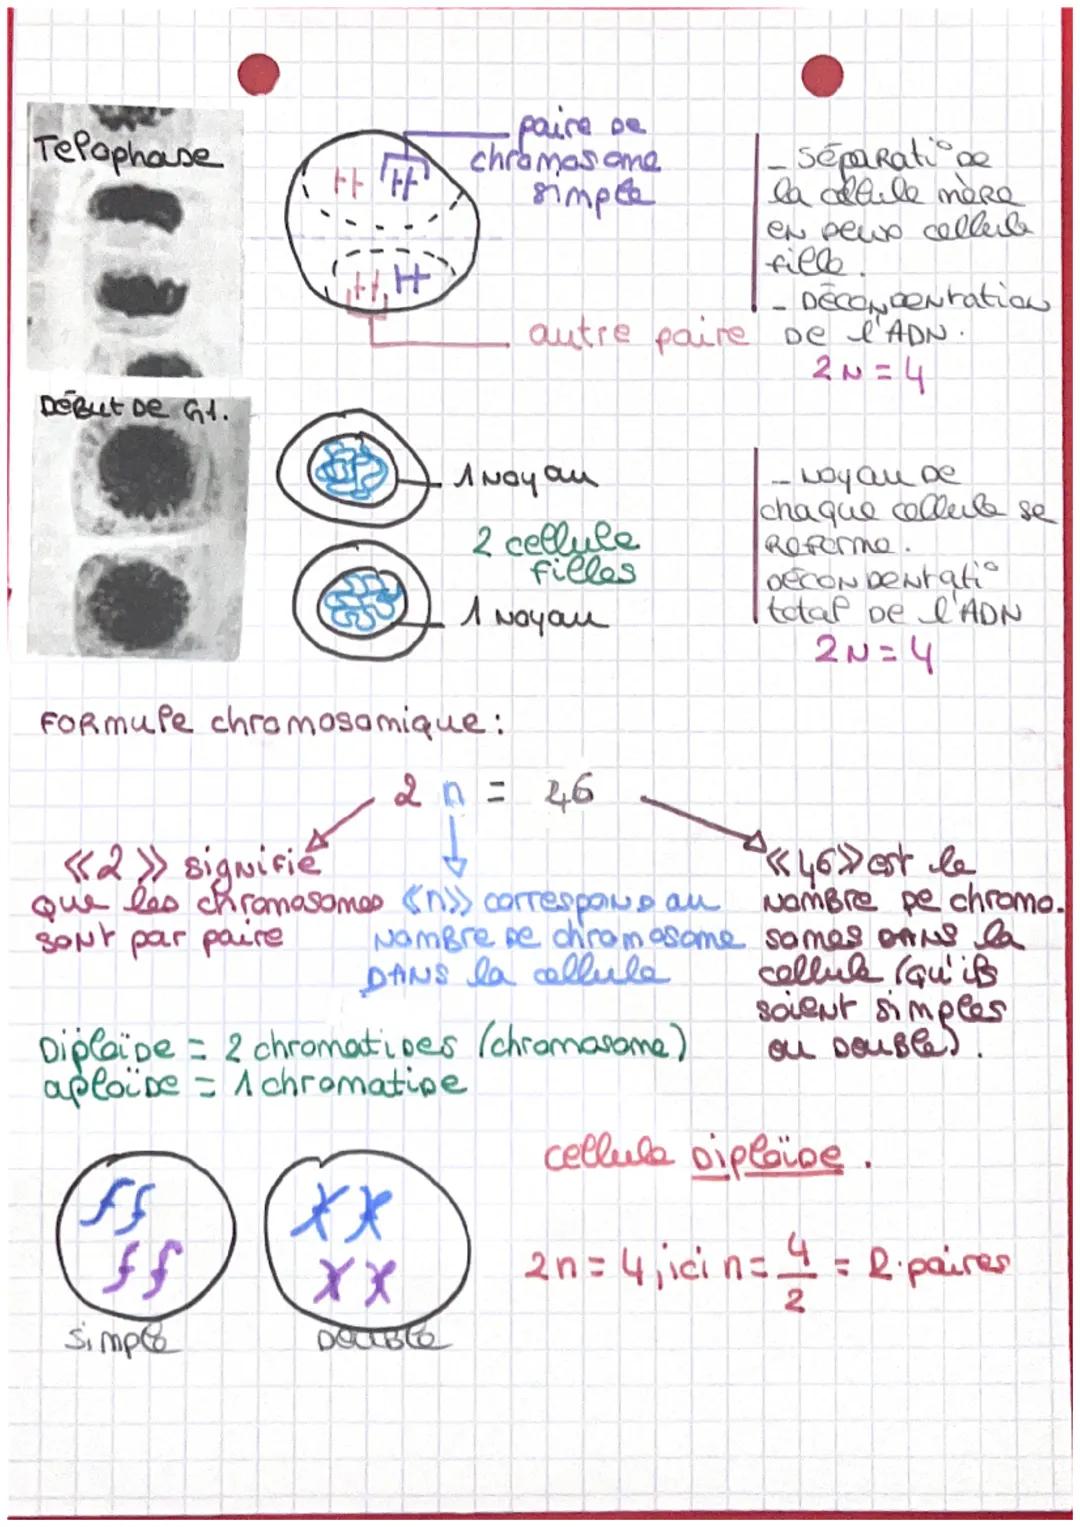 Telophase
paire de
chromosome
simple
- séparati° de
la cellule mère
en deux cellule
fille.
- Décondentration
De l'ADN.
2N = 4
autre paire
Début de G1.
1 Noyau
2 cellule
filles
1 Noyau
- Noyau de
chaque cellule se
reforme.
décondentrati°
total de l'ADN
2N = 4
Formule chromosomique :
2 n = 46
«2» signifie
que les chromosomes
sont par paire
«n» correspond au
Nombre de chromosome
DANS la cellule
«46» est le
Nombre de chromo.
somes DANS la
cellule (qu'ils
soient simples
ou double).
Diploïde = 2 chromatides (chromosome)
aploïde = 1 chromatide
cellule diploïde.
2n = 4, ici n = 4/2 = 2.paires
simple
Double